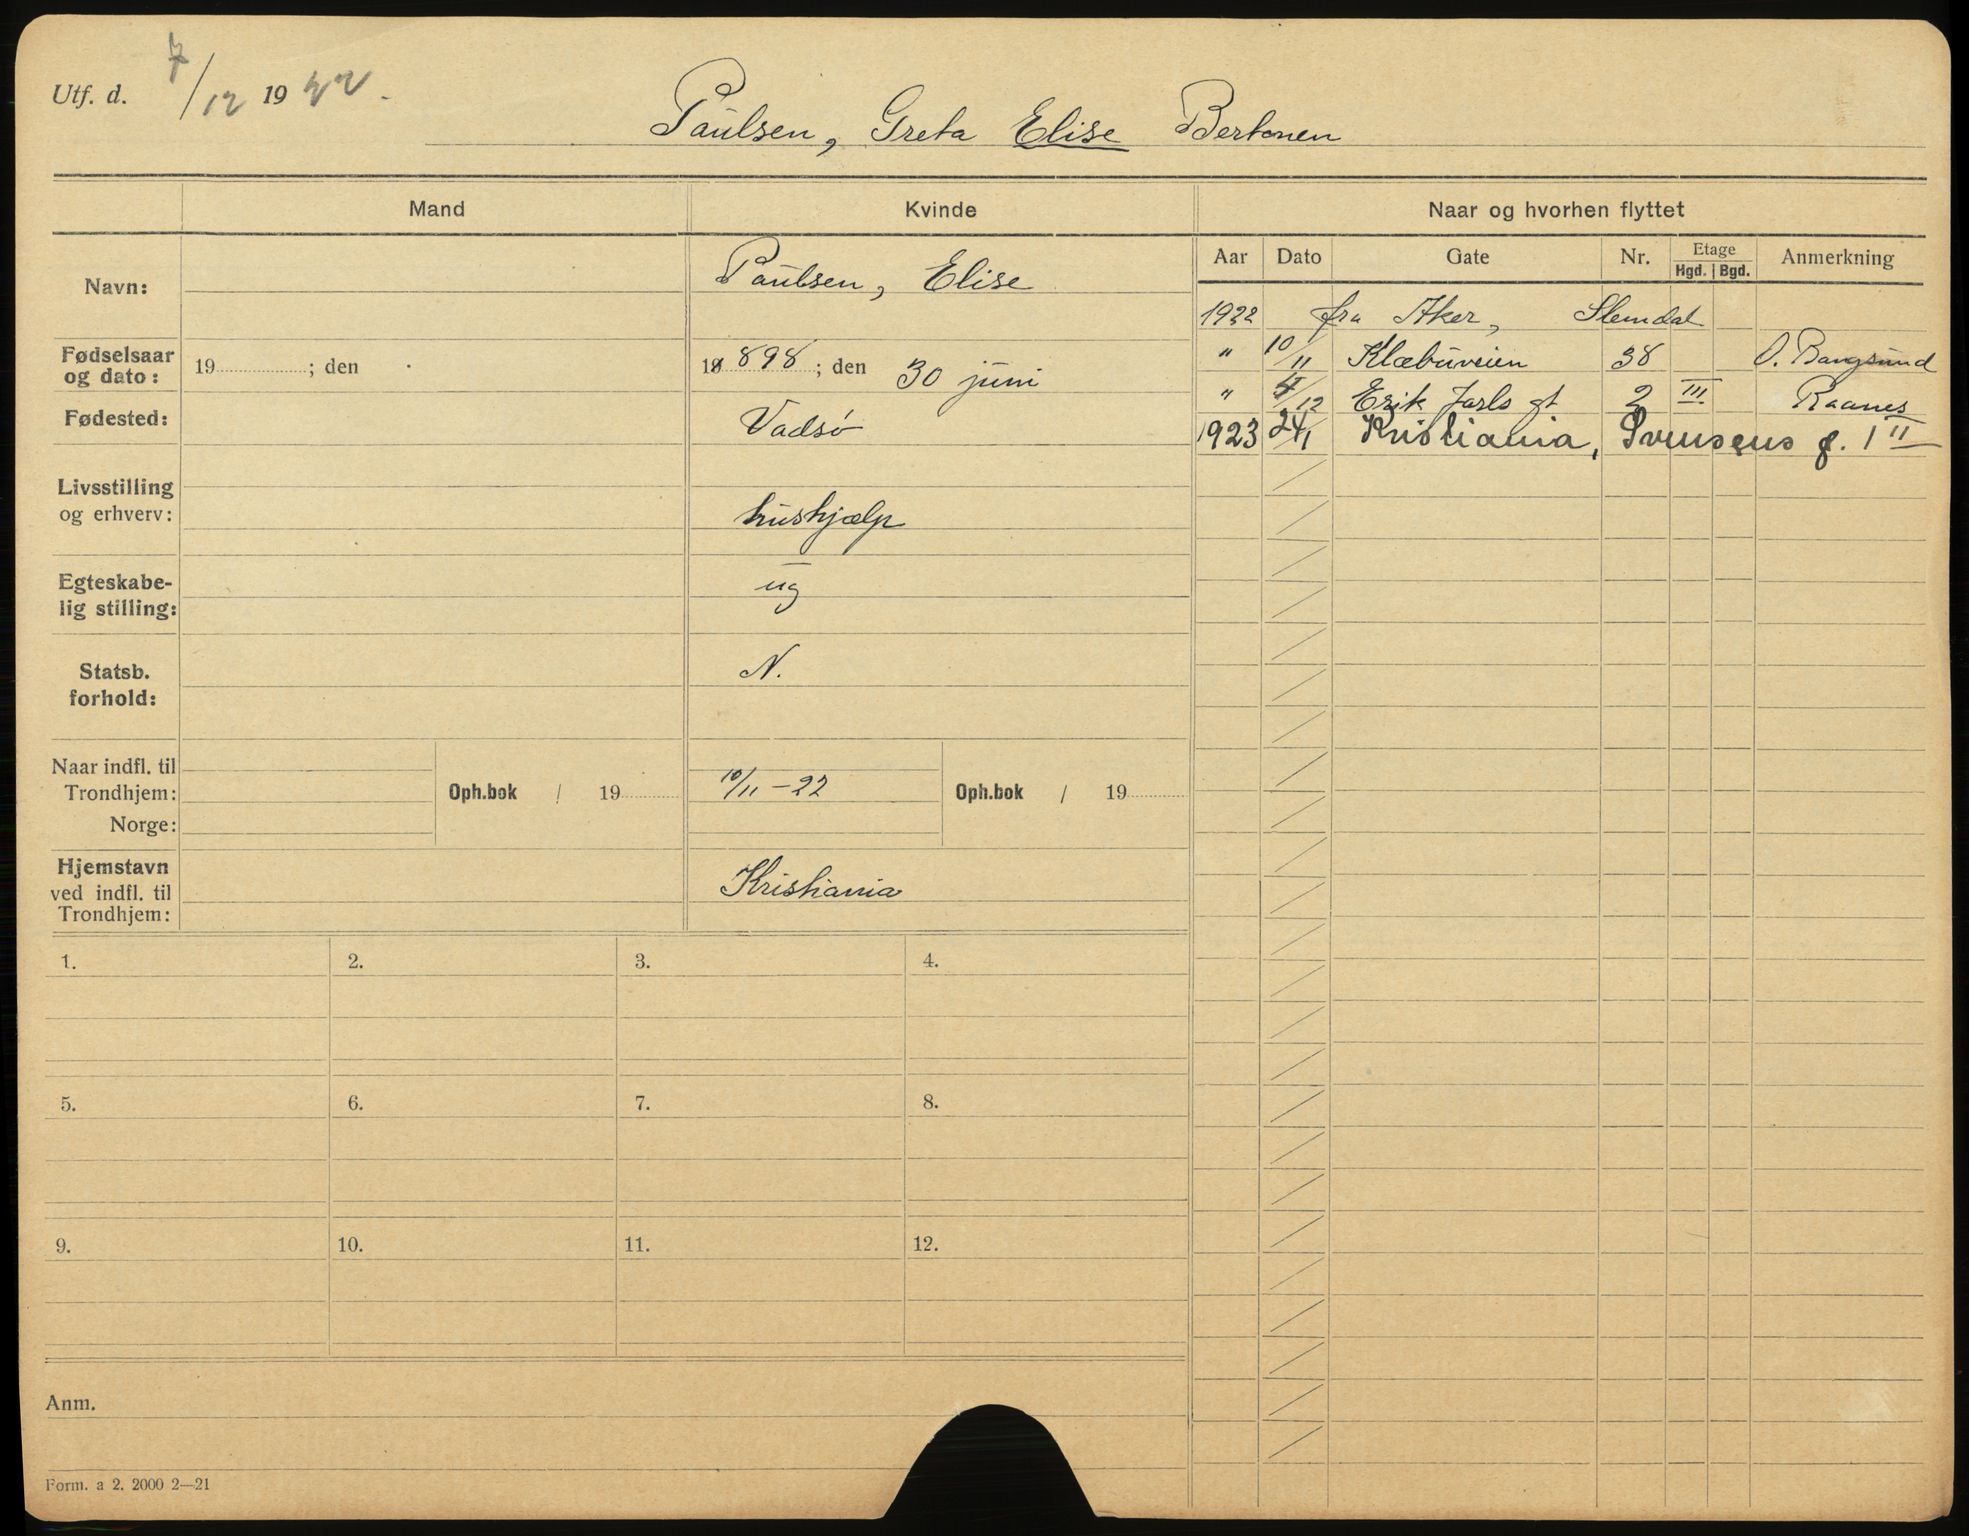 Utf. d. 7/12 1922.
Paulsen, Greta Elise Bertonen
Mand Kvinde Naar og hvorhen flyttet
Aar Dato Gate Nr. Etage Hgd. Bgd. Anmerkning
Navn: Paulsen, Elise
1922 fra Aker, Slemdal
Fødselsaar og dato: 19 ; den 1898 ; den 30 juni
" 10/11 Klæbuveien 38 O. Bangsund
" 4/12 Erik Jarls gt 2 III Raanes
Fødested: Vadsø
1923 24/1 Kristiania, Svensens g. 1 II
Livsstilling og erhverv: hushjælp
Egteskabe-
lig stilling: ug
Statsb. forhold: N.
Naar indfl. til
Trondhjem: Oph.bok / 19 10/11-22 Oph.bok / 19
Norge:
Hjemstavn
ved indfl. til
Trondhjem: Kristiania
1. 2. 3. 4.
5. 6. 7. 8.
9. 10. 11. 12.
Anm.
Form. a 2. 2000 2—21